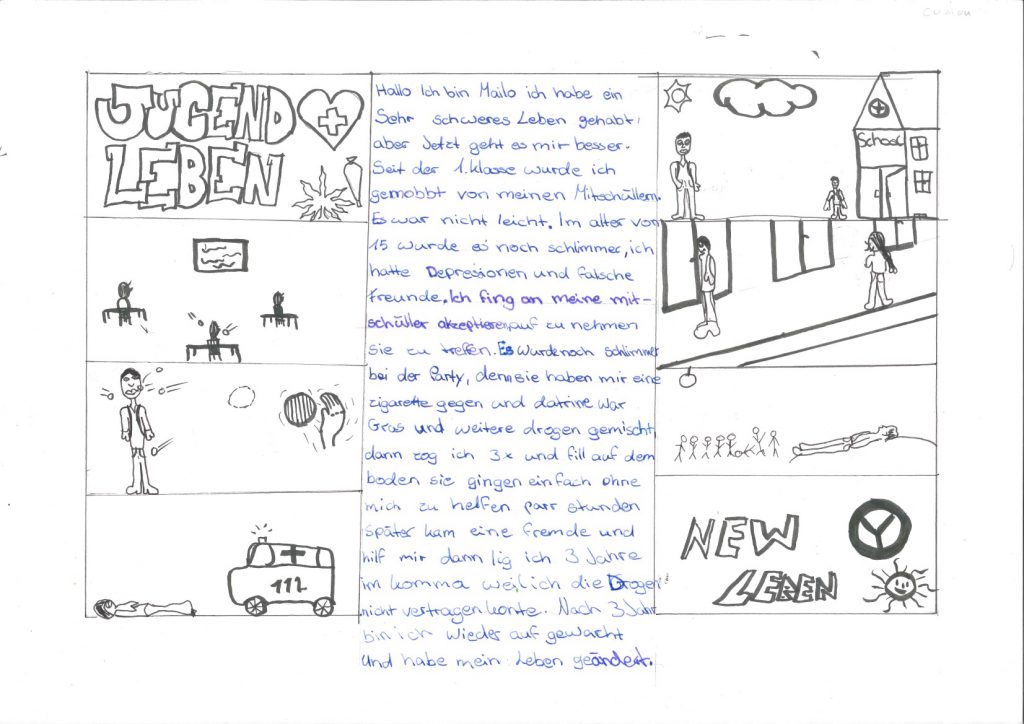 JUGEND
LEBEN
Hallo Ich bin Mailo ich habe ein
Sehr schweres Leben gehabt,
aber Jetzt geht es mir besser.
Seit der 1. klasse wurde ich
gemobbt von meinen Mitschüllern.
Es war nicht leicht. Im alter von
15 wurde es noch schlimmer, ich
hatte Depresionen und falsche
freunde. Ich fing an meine mit-
schüller akzeptieren, auf zu nehmen
sie zu treffen. Es wurde noch schlimmer
bei der Party, denn sie haben mir eine
zigarette gegen und datrine war
Gras und weitere drogen gemischt,
dann zog ich 3x und fill auf dem
boden sie gingen einfach ohne
mich zu helfen parr stunden
später kam eine fremde und
hilf mir dann lig ich 3 Jahre
im komma weil ich die Drogen
nicht vertragen konte. Nach 3 Jahr
bin ich wieder auf gewacht
und habe mein Leben geändert.
School
112
NEW
LEBEN